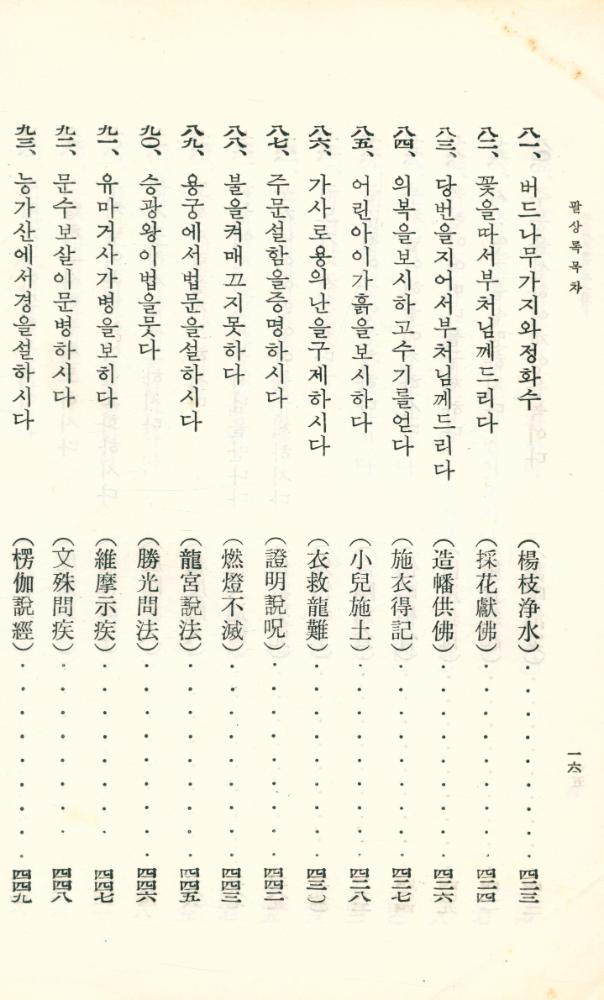 팔상록목차
一六
八一、버드나무가지와정화수 (楊枝浄水)············四二三
八二、꽃을따서부처님께드리다 (採花獻佛)············四二四
八三、당번을지어서부처님께드리다 (造幡供佛)············四二六
八四、의복을보시하고수기를얻다 (施衣得記)············四二七
八五、어린아이가흙을보시하다 (小兒施土)············四二八
八六、가사로용의난을구제하시다 (衣救龍難)············四三〇
八七、주문설함을증명하시다 (證明說呪)············四四二
八八、불을켜매끄지못하다 (燃燈不滅)············四四三
八九、용궁에서법문을설하시다 (龍宮說法)············四四五
九〇、승광왕이법을묻다 (勝光問法)············四四六
九一、유마거사가병을보히다 (維摩示疾)············四四七
九二、문수보살이문병하시다 (文殊問疾)············四四八
九三、능가산에서경을설하시다 (楞伽說經)············四四九